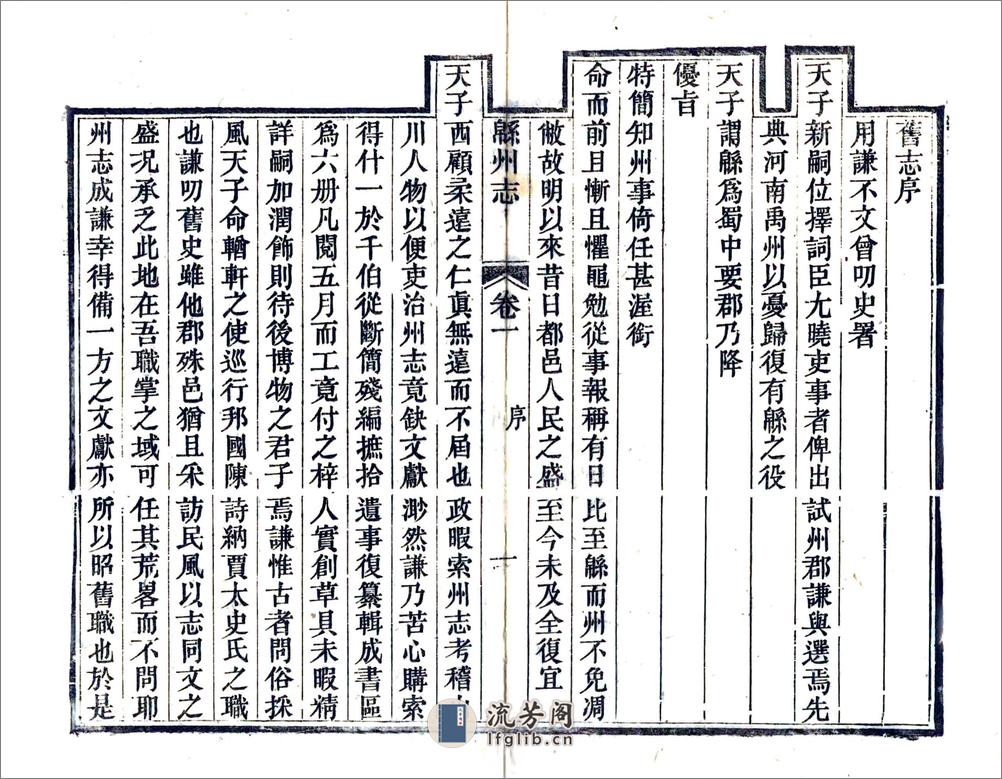 舊志序
用謙不文曾叨史署
天子新嗣位擇詞臣尢曉吏事者俾出試州郡謙與選焉先
典河南禹州以憂歸復有緜之役
天子謂緜為蜀中要郡乃降
優㫖
特簡知州事倚任甚渥銜
命而前且慚且懼黽勉從事報稱有日比至緜而州不免凋
敝故明以來昔日都邑人民之盛至今未及全復宜
緜州志 卷一 序 一
天子西顧柔遠之仁真無遠而不屆也政暇索州志考稽
川人物以便吏治州志竟缺文獻渺然謙乃苦心購索
得什一於千伯從斷簡殘編摭拾遺事復纂輯成書區
為六册凡閱五月而工竟付之梓人實創草具未暇精
詳嗣加潤飾則待後博物之君子焉謙惟古者問俗採
風天子命輶軒之使巡行邦國陳詩納賈太史氏之職
也謙叨舊史雖他郡殊邑猶且采訪民風以志同文之
盛况承乏此地在吾職掌之域可任其荒畧而不問耶
州志成謙幸得備一方之文獻亦所以昭舊職也於是
流芳阁
lfglib.cn